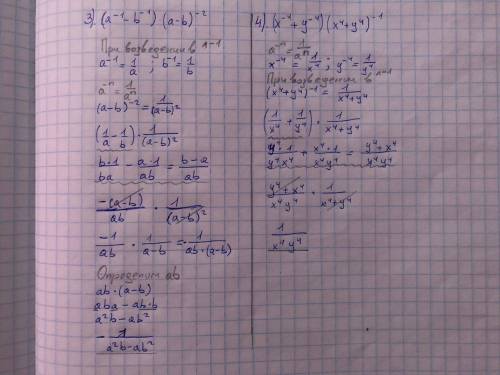 3) (a⁻¹-b⁻¹) (a-b)⁻²
При возведении в n⁻¹
a⁻¹ = 1/a ; b⁻¹ = 1/b
a⁻ⁿ = 1/aⁿ
(a-b)⁻² = 1/(a-b)²
(1/a - 1/b) · 1/(a-b)²
b·1/ba - a·1/ab = b-a/ab
-(a-b)/ab · 1/(a-b)²
-1/ab · 1/a-b = - 1/ab·(a-b)
Определим ab
ab·(a-b)
aba - ab·b
a²b - ab²
- 1/a²b-ab²
4). (x⁻⁴+y⁻⁴)(x⁴+y⁴)⁻¹
a⁻ⁿ = 1/aⁿ
x⁻⁴ = 1/x⁴ ; y⁻⁴ = 1/y⁴
При возведении в n⁻¹
(x⁴+y⁴)⁻¹ = 1/x⁴+y⁴
(1/x⁴ + 1/y⁴) · 1/x⁴+y⁴
y⁴·1/y⁴x⁴ + x⁴·1/x⁴y⁴ = y⁴+x⁴/x⁴y⁴
y⁴+x⁴/x⁴y⁴ · 1/x⁴+y⁴
1/x⁴y⁴